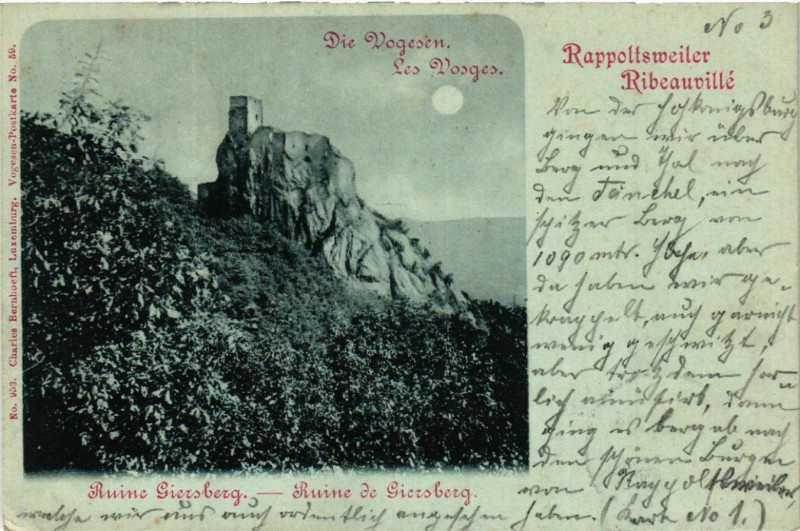 No 3
Die Vogesen.
Les Vosges.
Rappoltsweiler
Ribeauvillé
Von der Hohkönigsburg
gingen wir über
Berg und Thal nach
den Tänchel, ein
spitzer Berg von
1090 mtr. Höhe, aber
da haben wir ge-
krappelt, auch garnicht
wenig geschwitzt,
aber trotzdem herr-
lich amüsirt, dann
ging es bergab nach
den schönen Burgen
von Rappoltsweiler
welche wir uns auch ordentlich angesehen haben. (Karte No 1.)
Ruine Giersberg. — Ruine de Giersberg.
No. 953. Charles Bernhoeft, Luxemburg. Vogesen-Postkarte No. 59.